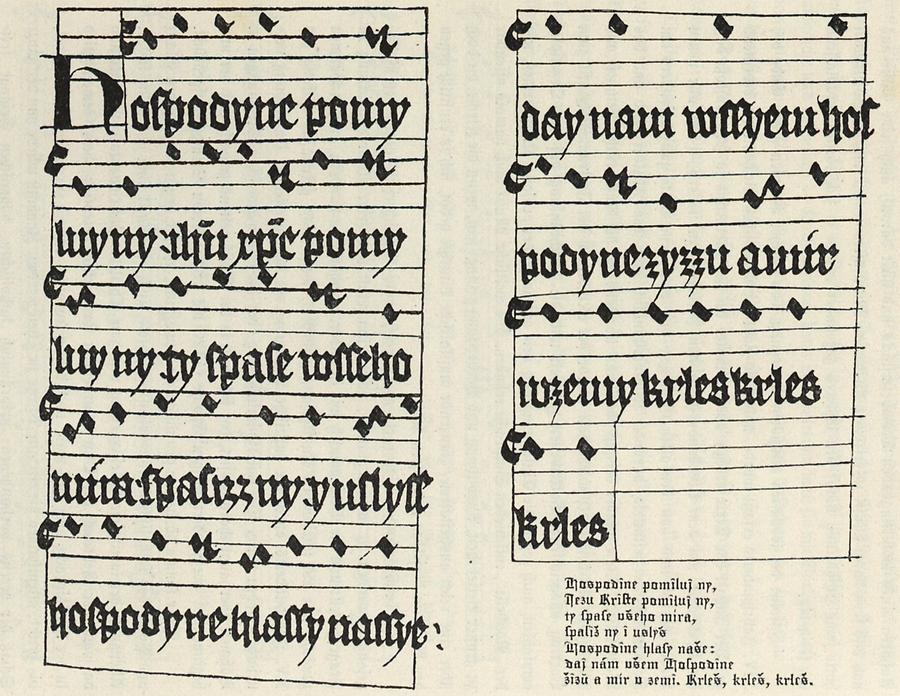 Hospodyne pomy
luy ny ihū xpē pomy
luy ny ty spase wsseho
mira spasizz ny y uslyss
hospodyne hlassy nassye:
day nam wssyem hos
podyne zyzzu a mir
wzemy krles krles
krles
Hospodine pomiluj ny,
Jezu Kriste pomiluj ny,
ty spase všeho míra,
spasiž ny i uslyš
Hospodine hlasy naše:
daj nám všem Hospodine
žizň a mír v zemi. Krleš, krleš, krleš.